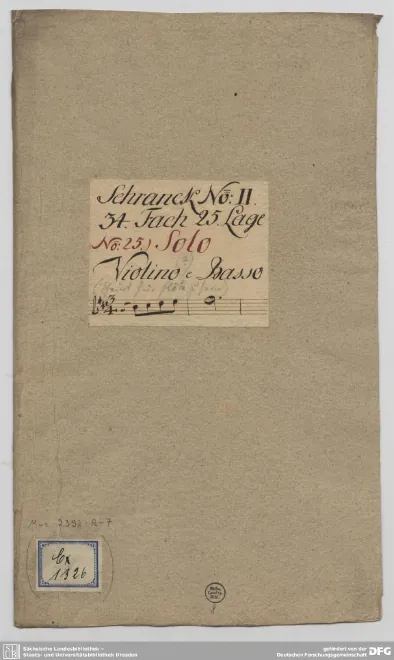 Schranck No: II.
34. Fach 25. Lage
No: 25.) Solo
Violino e Basso
Mus. 2392-R-7
Cx
1326
8
SLUB
Sächsische Landesbibliothek –
Staats- und Universitätsbibliothek Dresden
gefördert von der
Deutschen Forschungsgemeinschaft
DFG